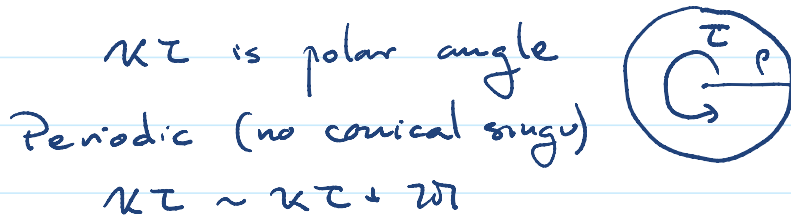 κτ is polar angle
τ
ρ
Periodic (no conical singu)
κτ ~ κτ + 2π